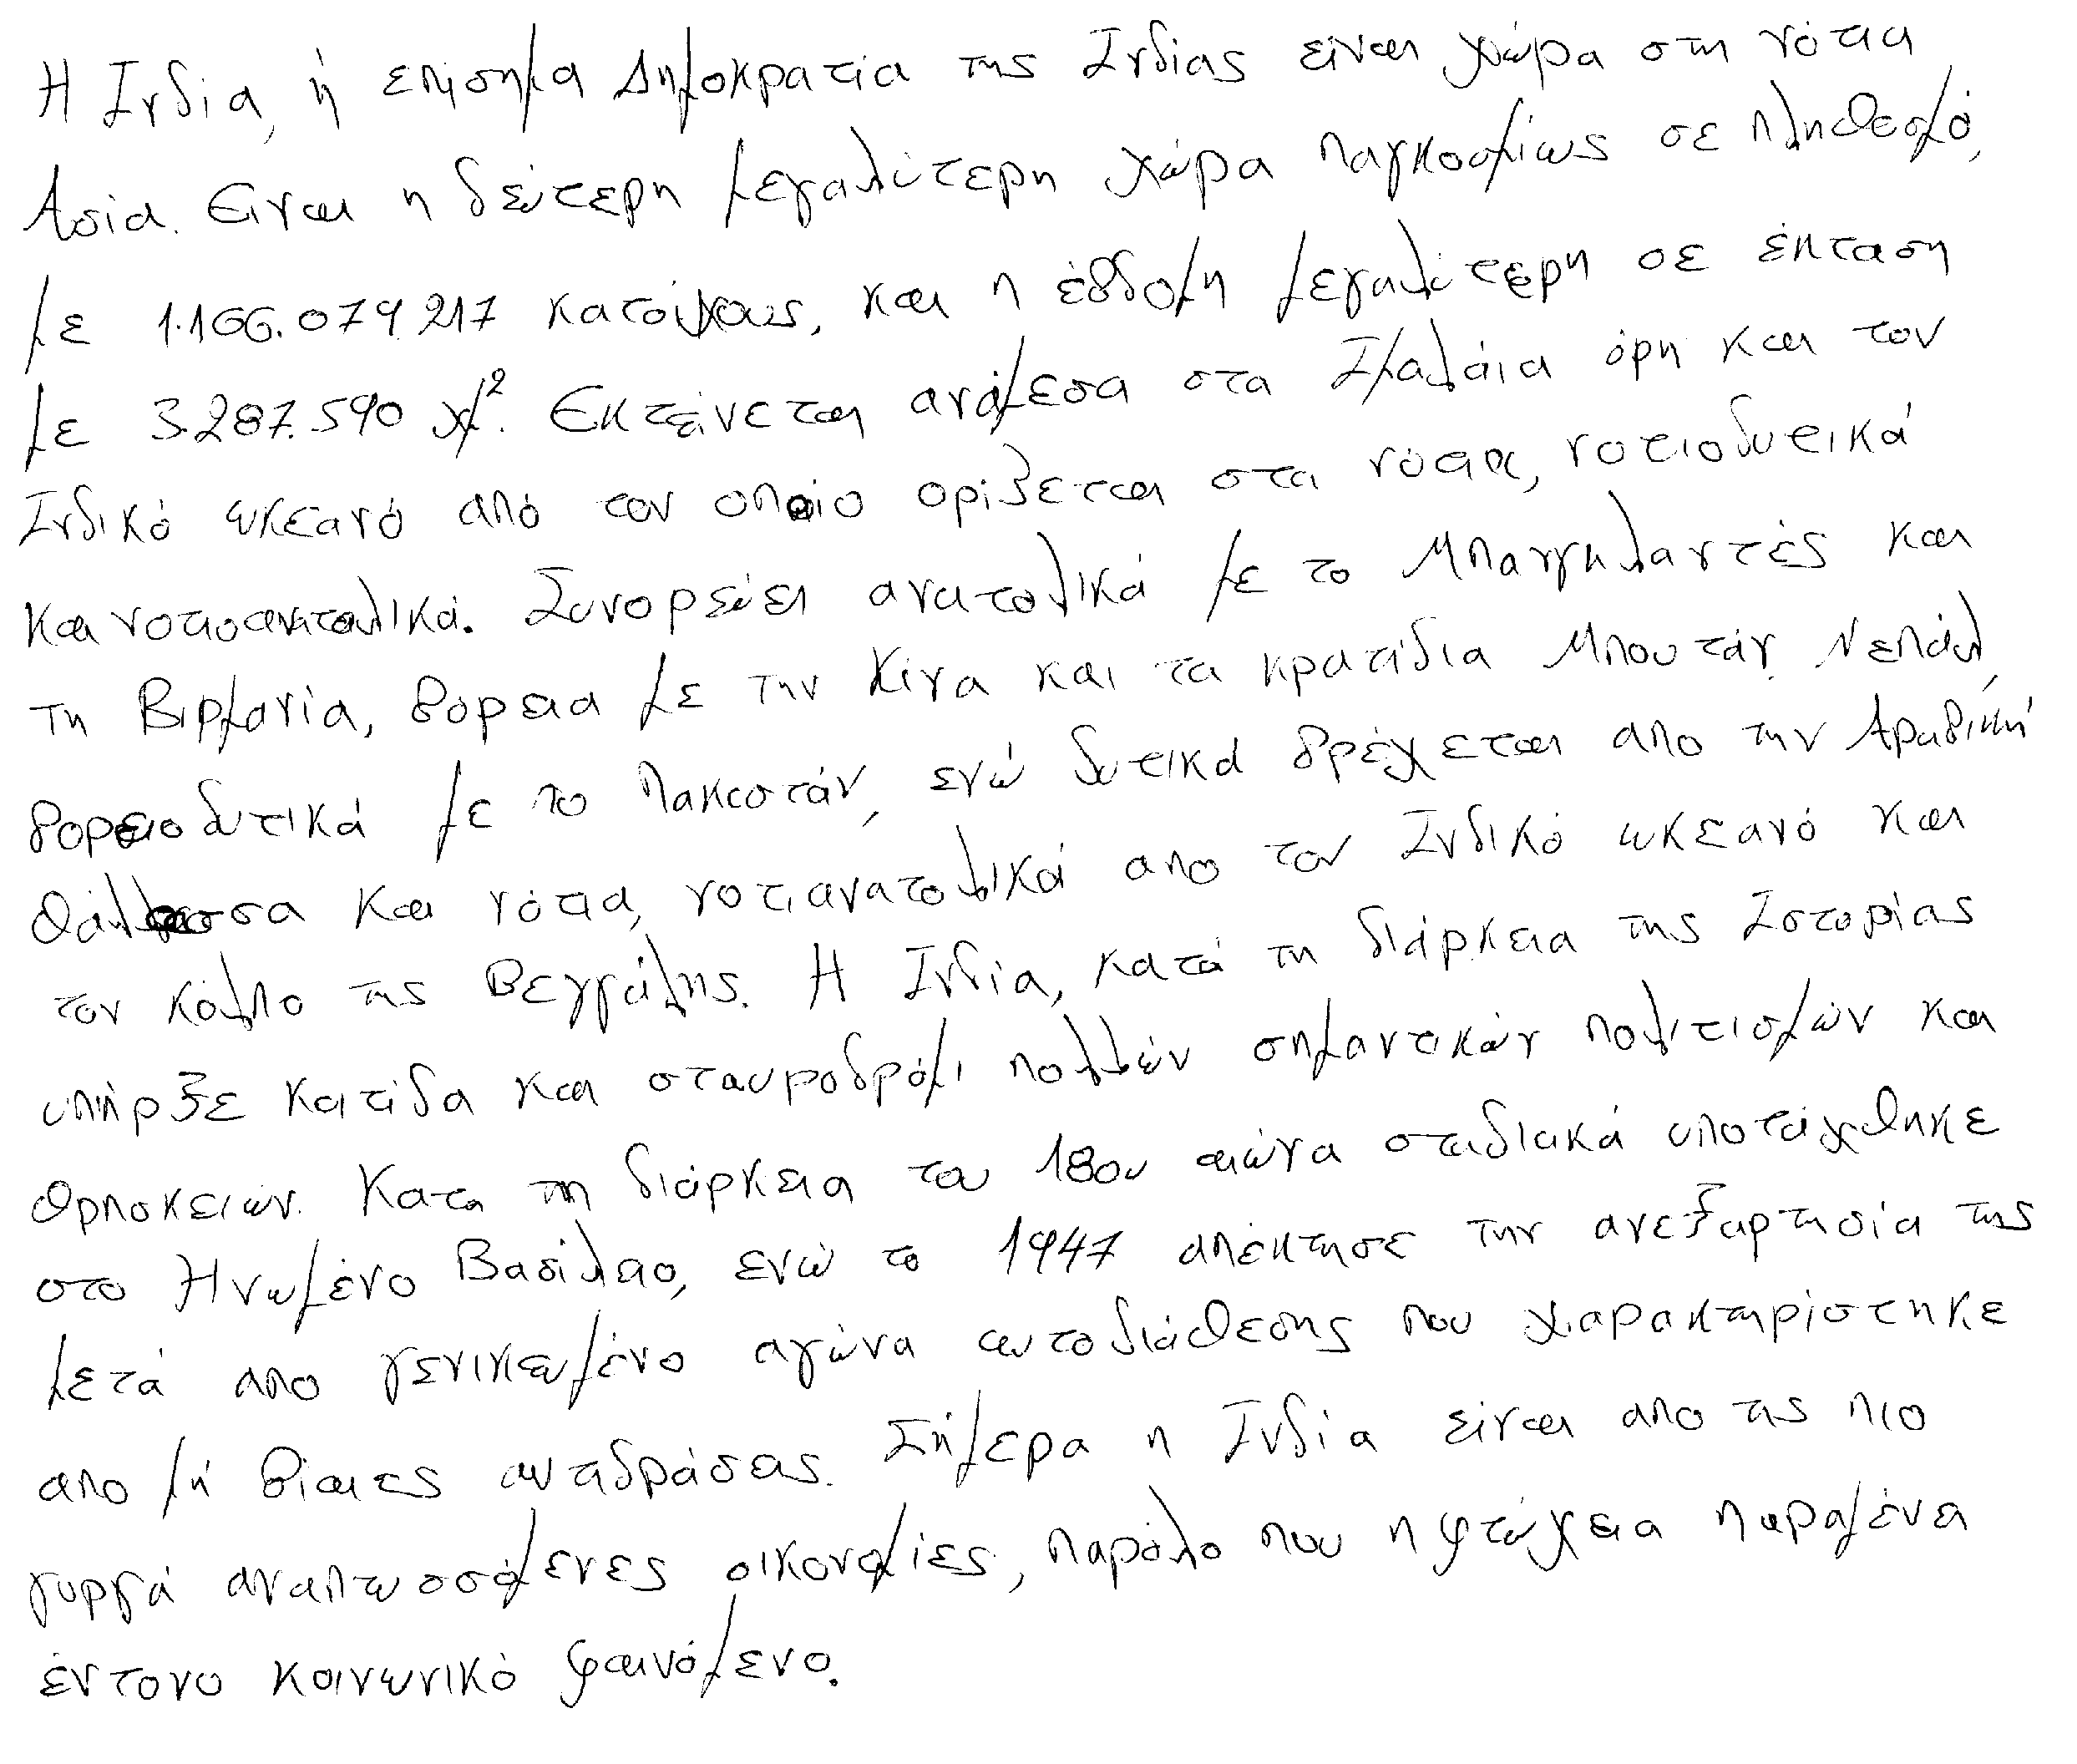 Η Ινδία, ή επίσημα Δημοκρατία της Ινδίας είναι χώρα στη νότια
Ασία. Είναι η δεύτερη μεγαλύτερη χώρα παγκοσμίως σε πληθυσμό,
με 1.166.079.217 κατοίκους, και η έβδομη μεγαλύτερη σε έκταση
με 3.287.590 χμ². Εκτείνεται ανάμεσα στα Ιμαλάια όρη και τον
Ινδικό ωκεανό από τον οποίο ορίζεται στα νότια, νοτιοδυτικά
και νοτιοανατολικά. Συνορεύει ανατολικά με το Μπαγκλαντές και
τη Βιρμανία, βόρεια με την Κίνα και τα κρατίδια Μπουτάν, Νεπάλ,
βορειοδυτικά με το Πακιστάν, ενώ δυτικά βρέχεται απο την Αραβική
θάλασσα και νότια, νοτιανατολικά απο τον Ινδικό ωκεανό και
τον κόλπο της Βεγγάλης. Η Ινδία, κατά τη διάρκεια της Ιστορίας
υπήρξε κοιτίδα και σταυροδρόμι πολλών σημαντικών πολιτισμών και
θρησκειών. Κατα τη διάρκεια του 18ου αιώνα σταδιακά υποτάχθηκε
στο Ηνωμένο Βασίλειο, ενώ το 1947 απέκτησε την ανεξαρτησία της
μετά απο γενικευμένο αγώνα αυτοδιάθεσης που χαρακτηρίστηκε
απο μή βίαιες αντιδράσεις. Σήμερα η Ινδία είναι απο τις πιο
γοργά αναπτυσσόμενες οικονομίες, παρόλο που η φτώχεια παραμένει
έντονο κοινωνικό φαινόμενο.